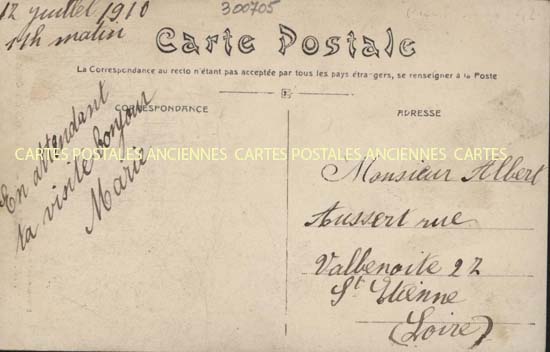 12 juillet 1910
11h matin
300705
Carte Postale
La Correspondance au recto n'étant pas acceptée par tous les pays étrangers, se renseigner à la Poste
CORRESPONDANCE
ADRESSE
En attendant
ta visite bonjour
Marie
CARTES POSTALES ANCIENNES CARTES POSTALES ANCIENNES CARTES
Monsieur Albert
Aussert rue
Valbenoite 27
St Etienne
(Loire)